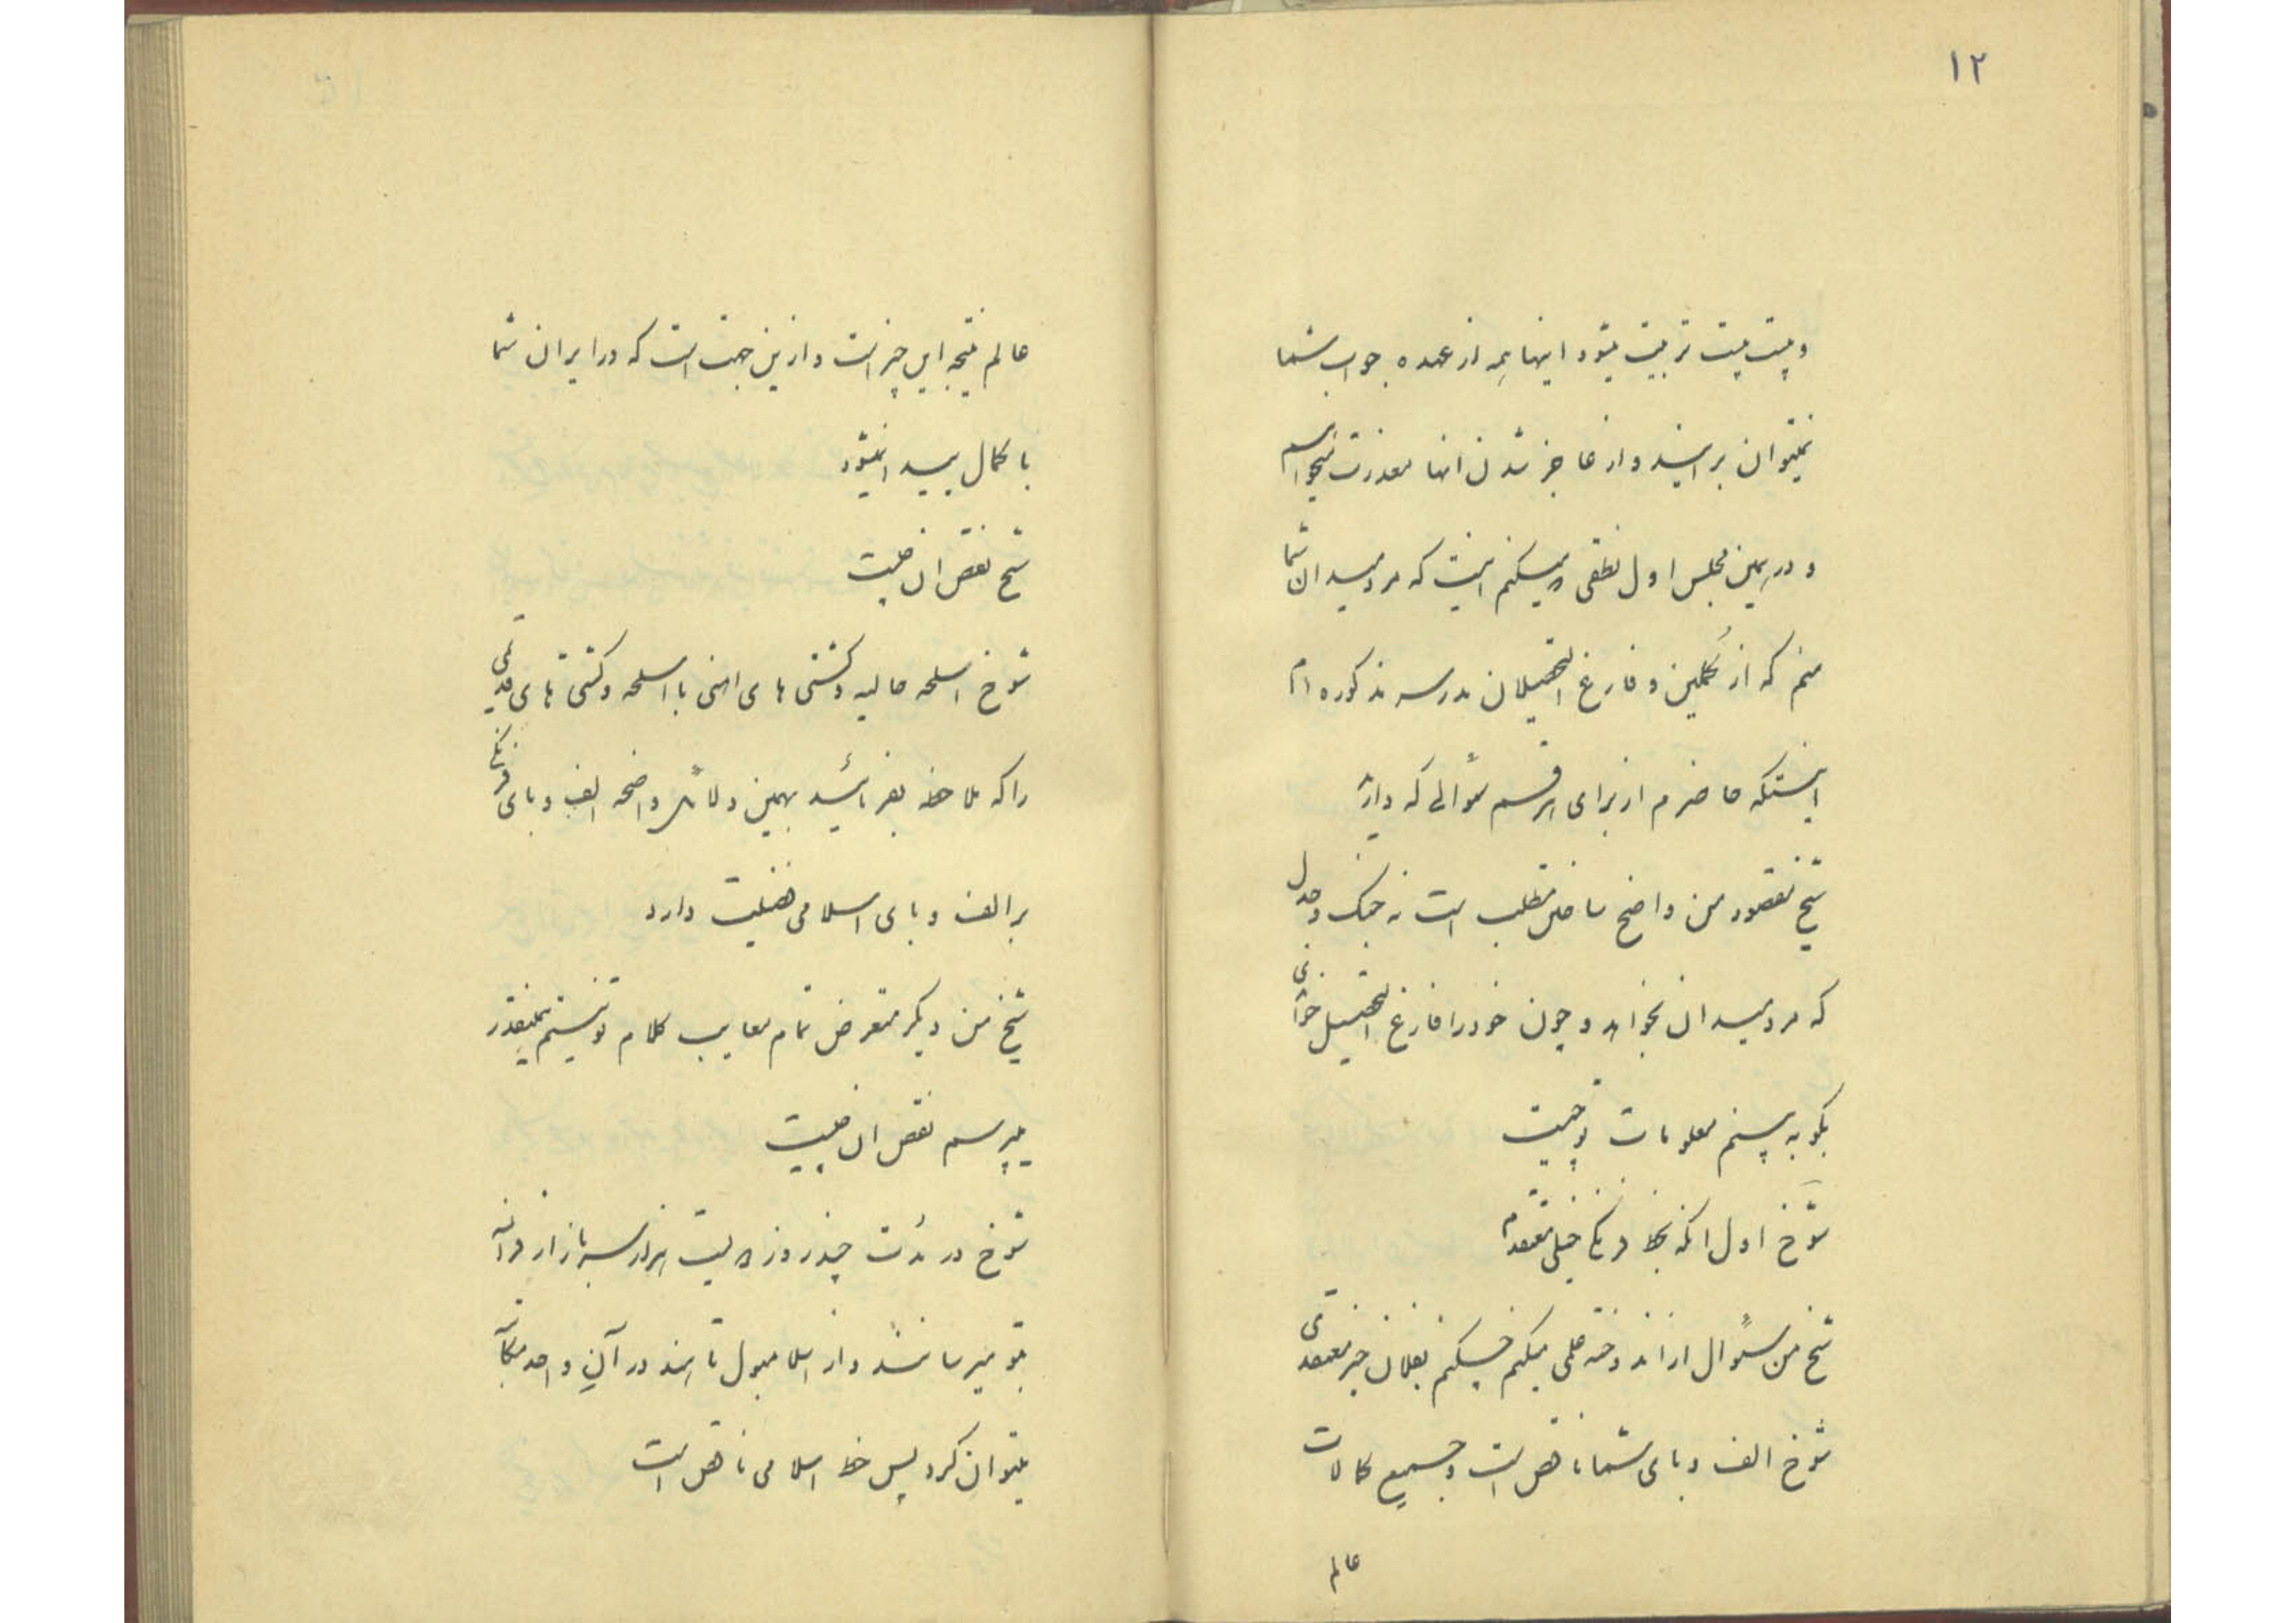 ۱۲
و پست پست تربیت میشود اینها همه از عهده جواب شما
نمیتوان برایند و از عاجز شدن انها معذرت میخواهم
و در همین مجلس اول نطقی که میکنم اینست که مرد میدان شما
منم که از مکملین و فارغ التحصیلان مدرسه مذکوره ام
اینستکه حاضرم از برای هر قسم سؤالی که دارید
شیخ مقصود من واضح ساختن مطلب است نه جنگ و جدل
که مرد میدان بخواهد و چون خود را فارغ التحصیل خواندی
بگو به بینم معلومات تو چیست
شوخ اول انکه بخط فرنگی خیلی معتقدم
شیخ من سؤال از اندوخته علمی میکنم نمیگویم بفلان چیز معتقدی
شوخ الف و بای شما ناقص است و جمیع کمالات
عالم
عالم نتیجه این چیز است و ازین جهت است که در ایران شما
با کمال پیدا نمیشود
شیخ نقص ان چیست
شوخ اسلحه حالیه و کشتی های اهنی با اسلحه و کشتی های قدیمی
را که ملاحظه بفرمائید بهمین دلائل واضحه الف و بای فرنگی
بر الف و بای اسلامی فضیلت دارد
شیخ من دیگر متعرض تمام معایب کلام تو نیستم همینقدر
میپرسم نقص ان چیست
شوخ در مدت چند روز دویست هزار سرباز از فرانسه
بتو میرسانند و از اسلامبول تا هند در آنِ واحد مکالمه
میتوان کرد پس خط اسلامی ناقص است